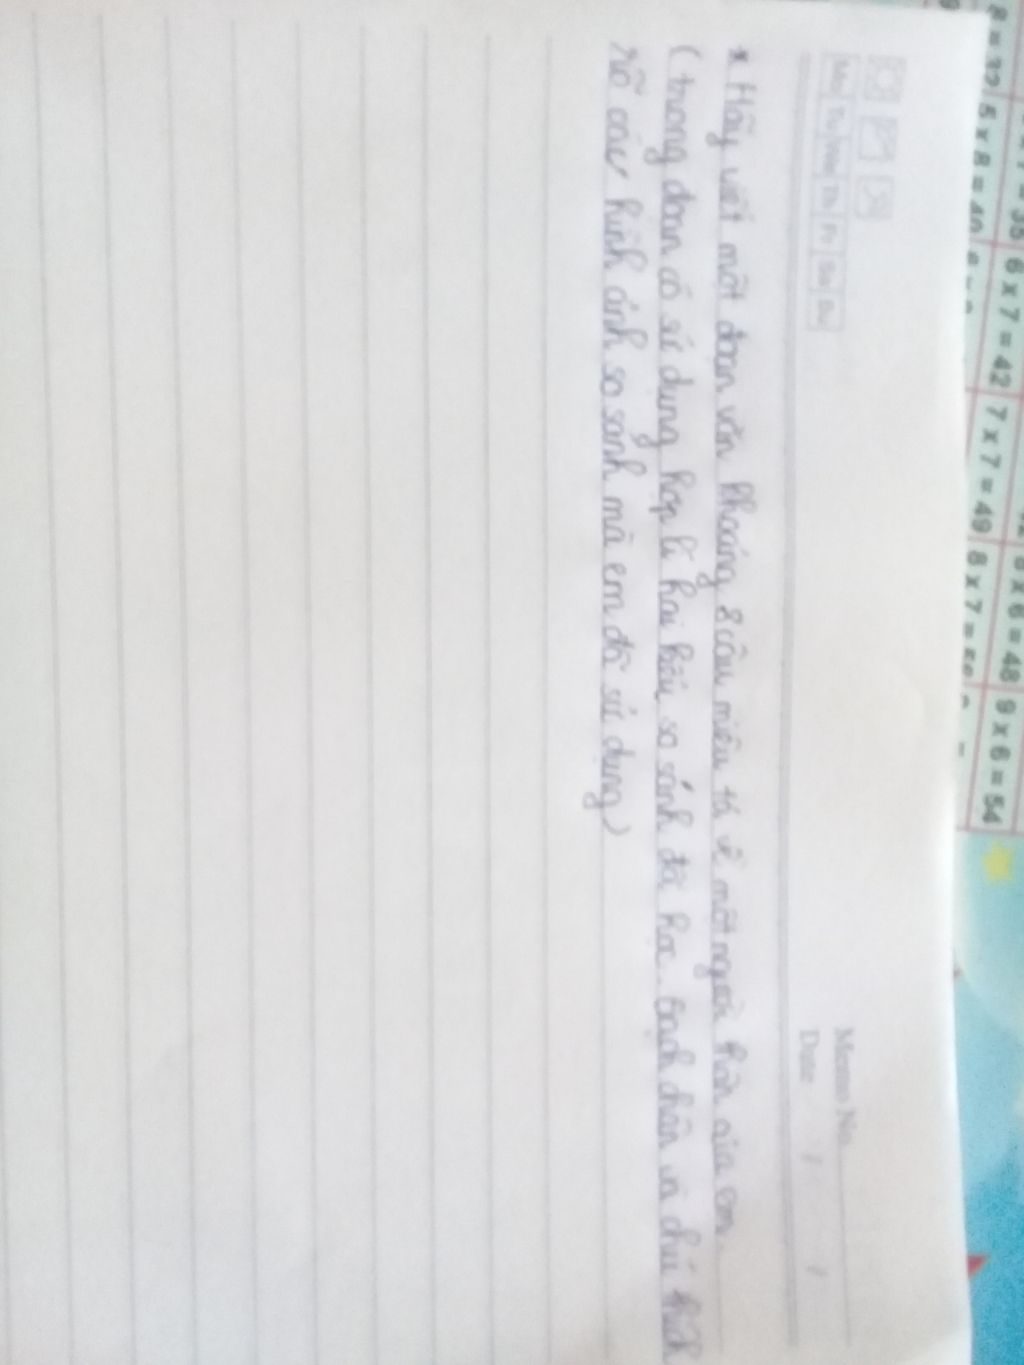 Mo Tu We Th Fr Sa Su
Memo No.
Date / /
* Hãy viết một đoạn văn khoảng 8 câu miêu tả về một người thân của em.
( trong đoạn có sử dụng hợp lí hai kiểu so sánh đã học. Gạch chân và chú thích
rõ các hình ảnh so sánh mà em đã sử dụng)
8 = 32
5 x 8 = 40
= 35
6 x 7 = 42
7 x 7 = 49
8 x 7 = 56
x 6 = 48
9 x 6 = 54